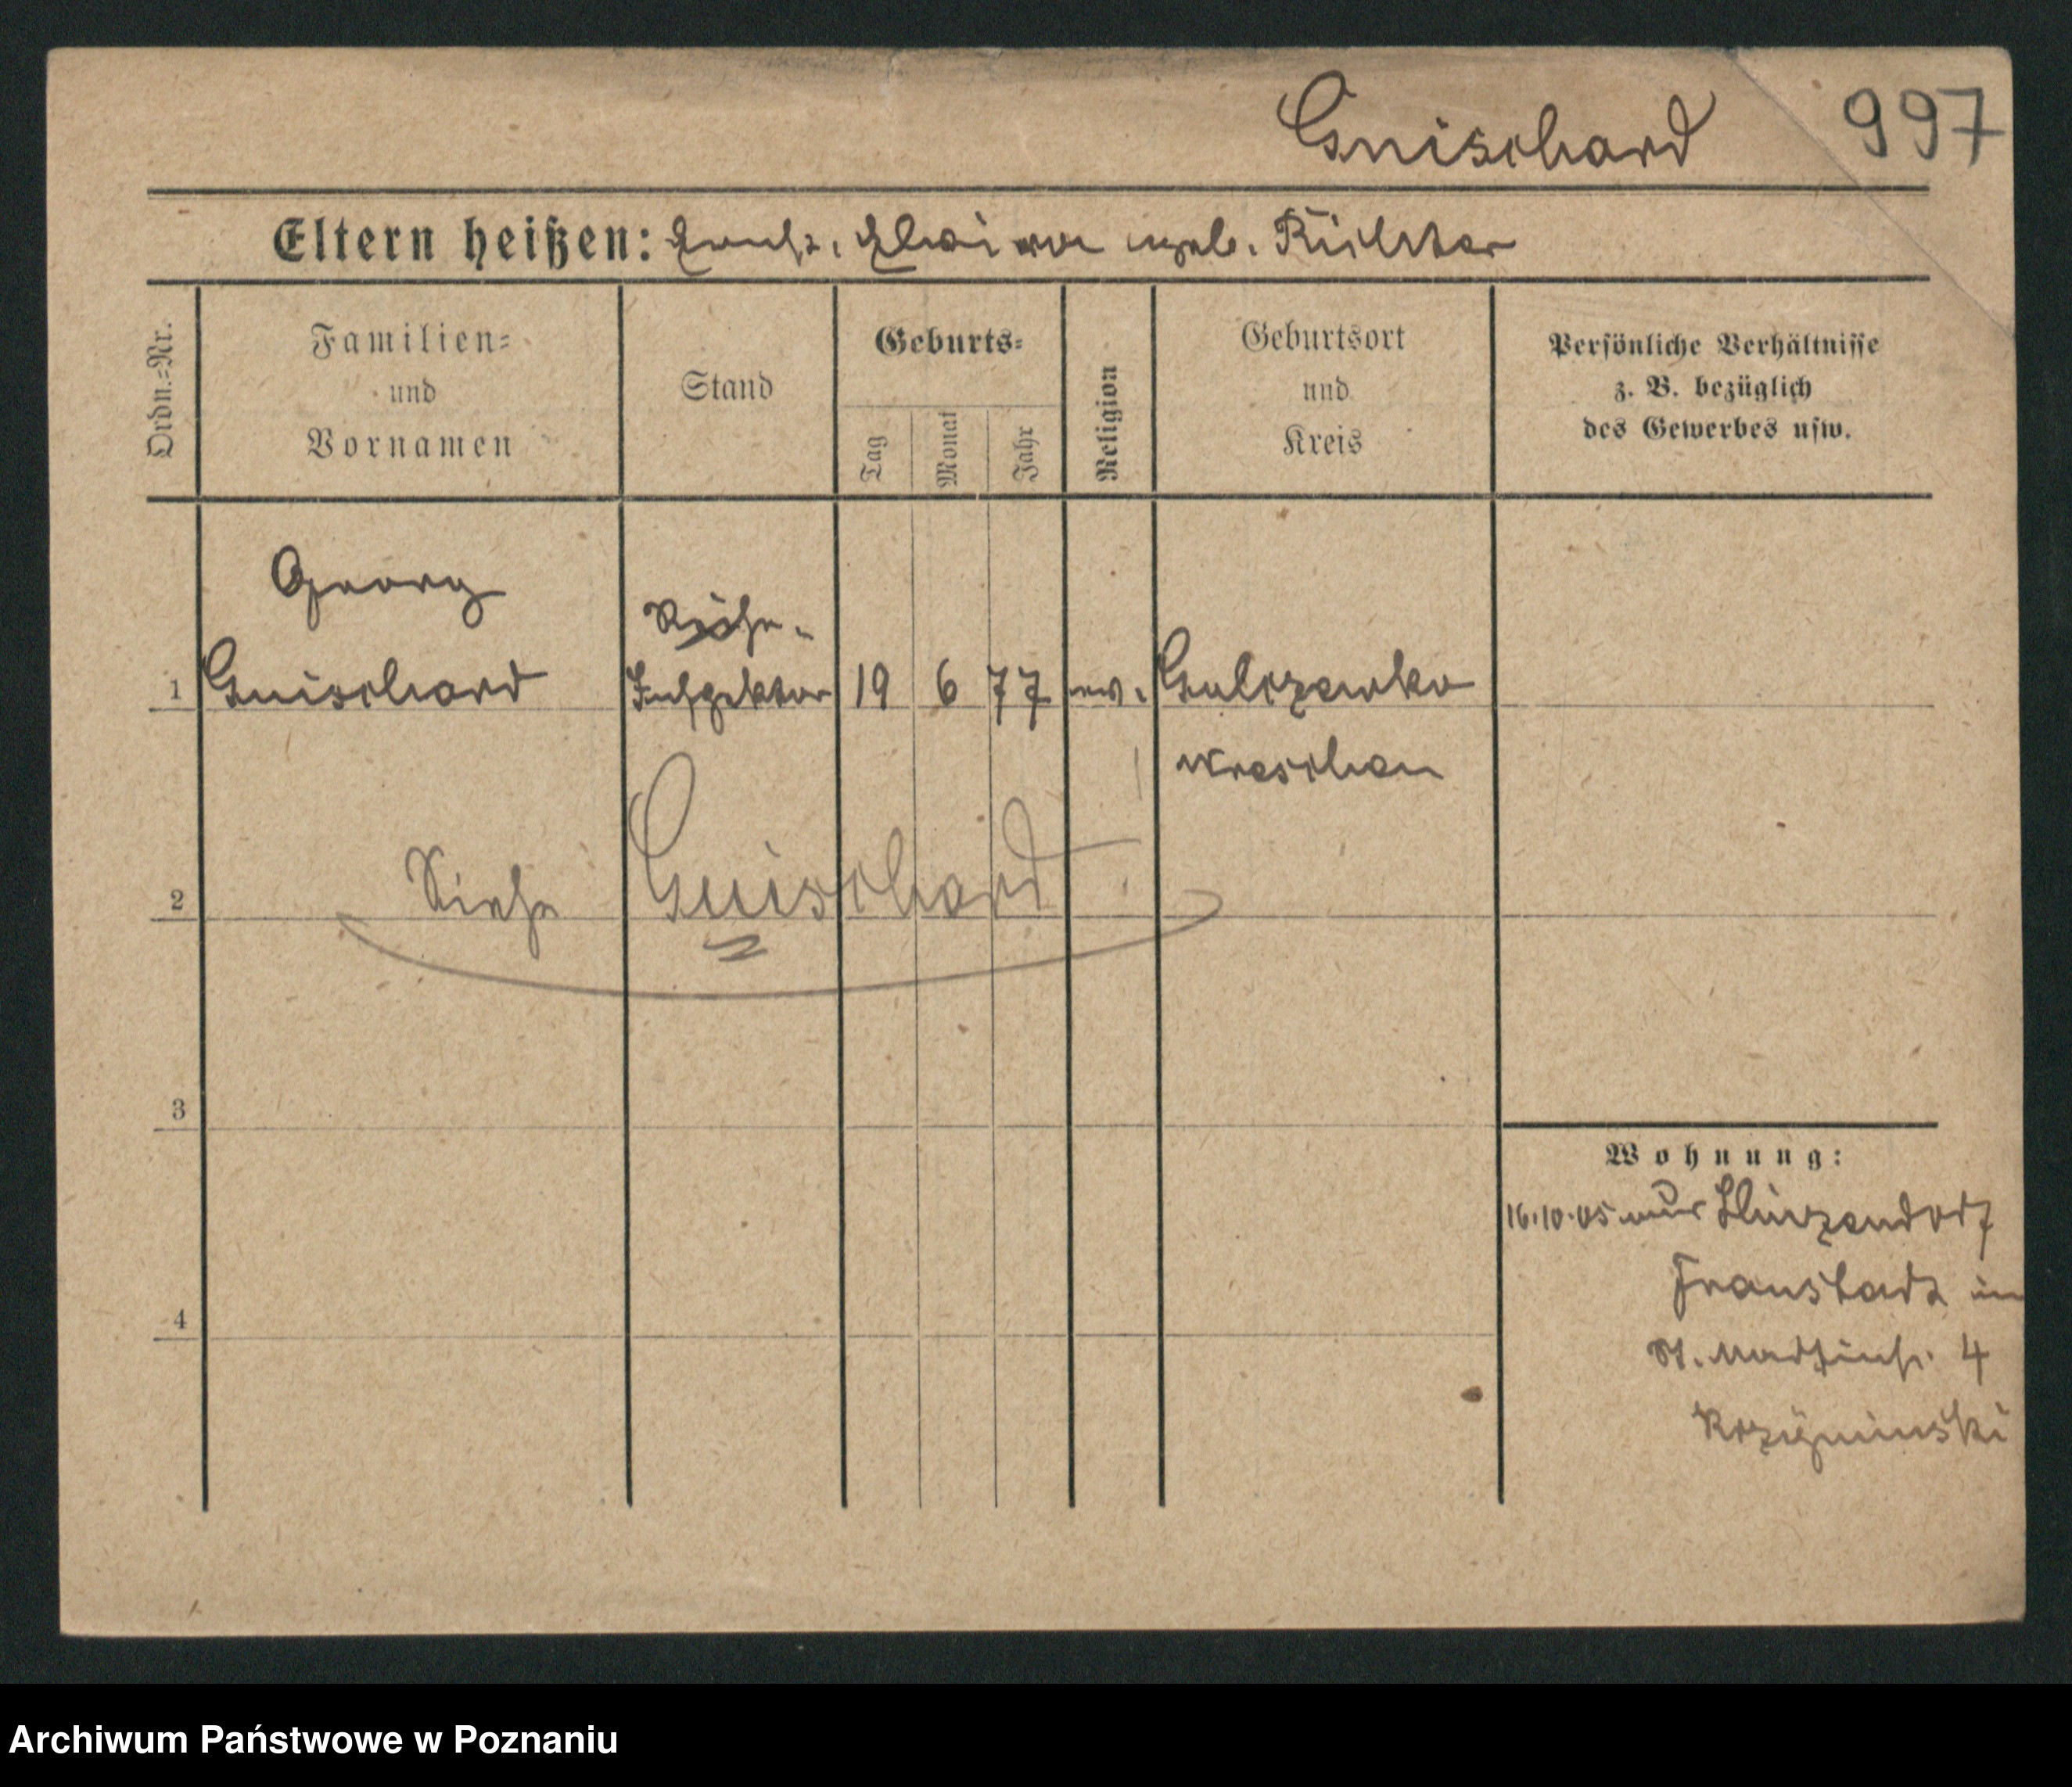 Gnischard 997
Eltern heißen: Ernst, geb. Richter
Ordn.=Nr.
Familien= und Vornamen
Stand
Geburts=
Tag
Monat
Jahr
Religion
Geburtsort und Kreis
Persönliche Verhältnisse
z. B. bezüglich
des Gewerbes usw.
Georg
1 Gnischard Inspektor 19 6 77 ev. Gulczewko
Wreschen
2 Siehe Guischard
3
4
Wohnung:
16.10.05 aus
Fraustadt in
St. Martinstr. 4
Archiwum Państwowe w Poznaniu